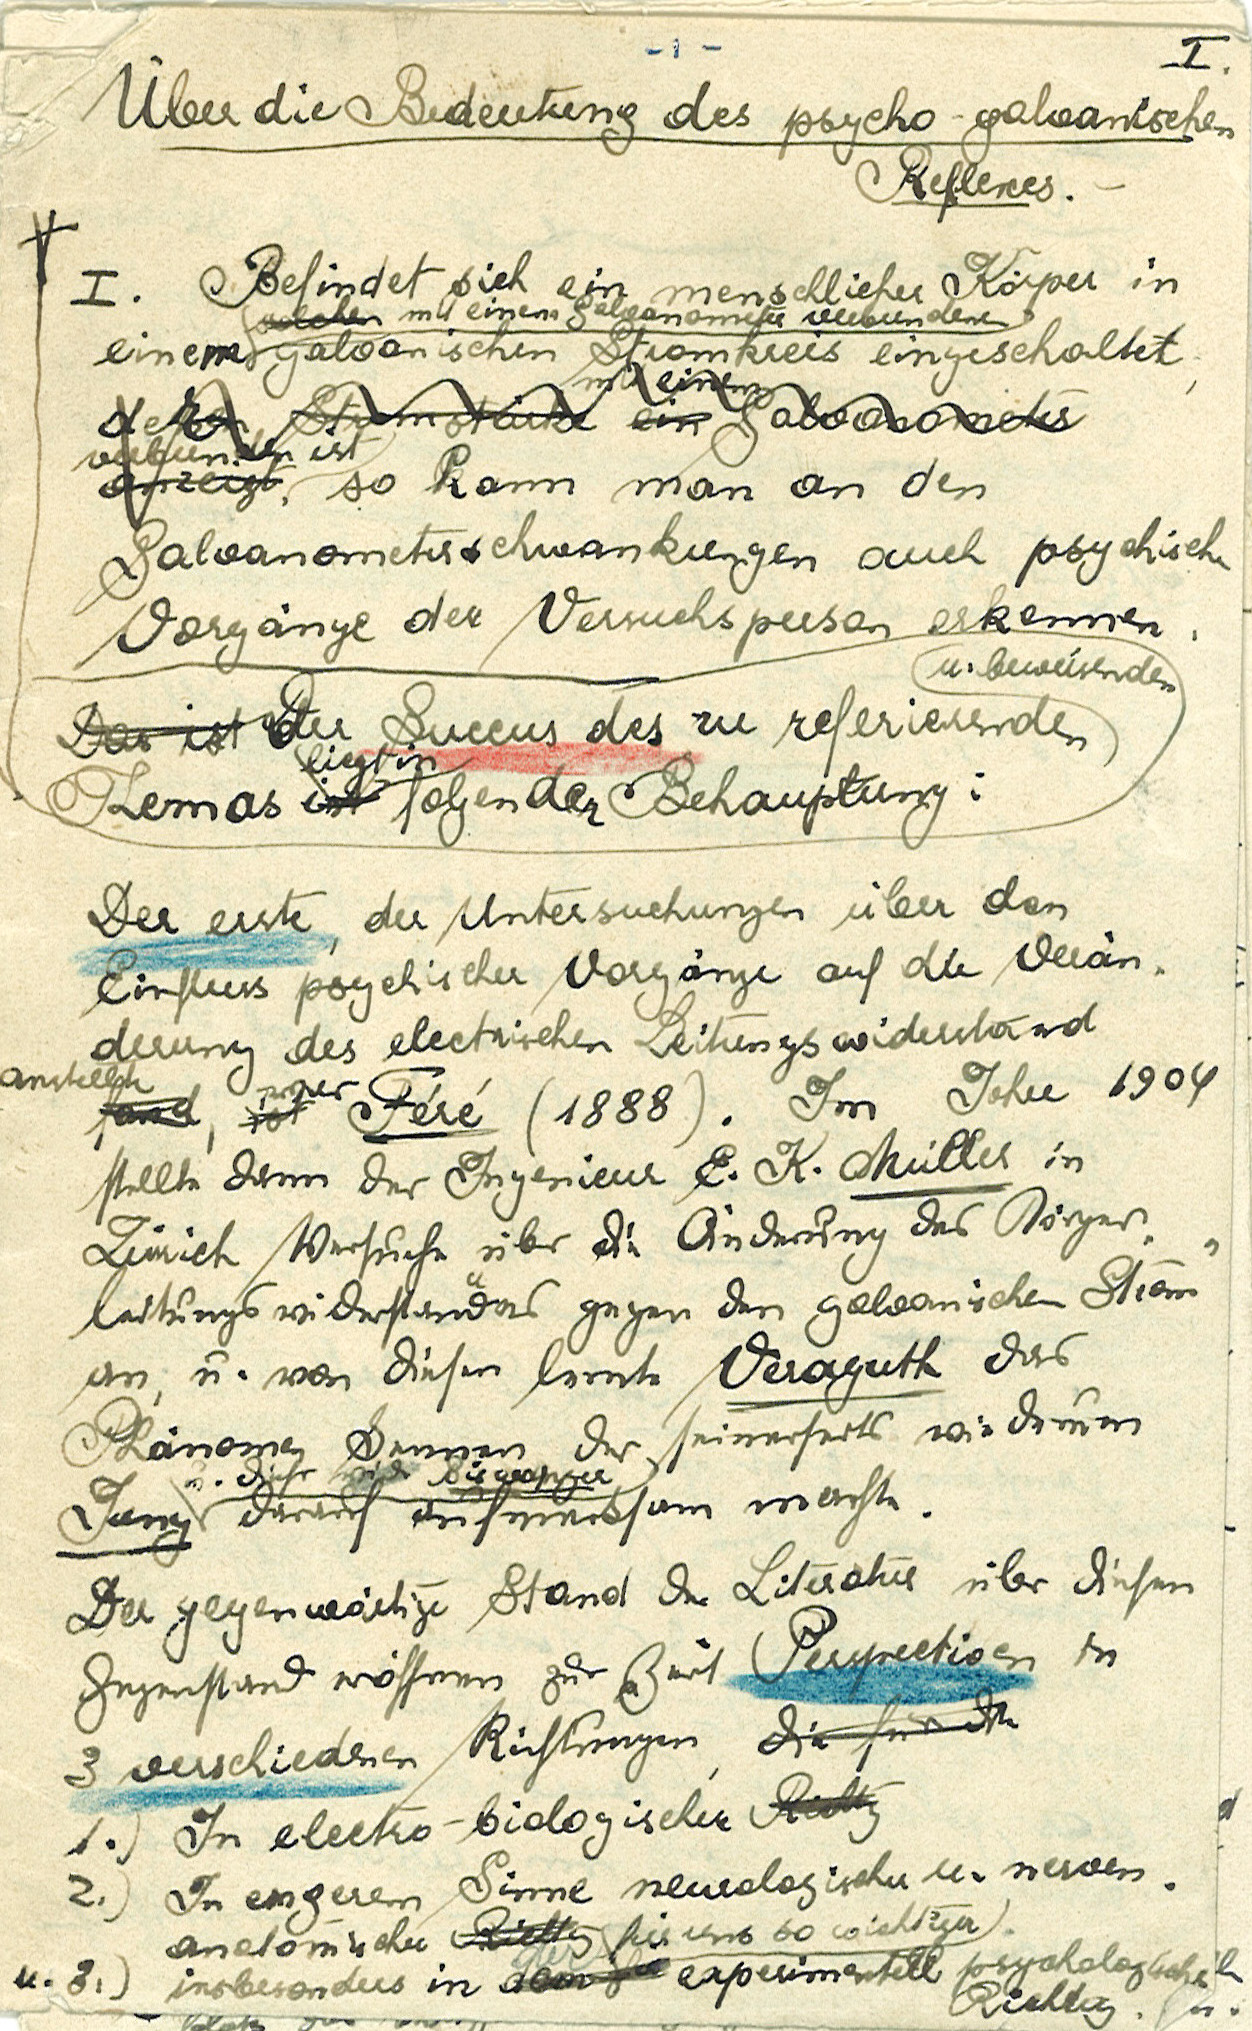 - 1 -
I.
Über die Bedeutung des psycho-galvanischen
Reflexes. -
I. Befindet sich ein menschlicher Körper in
solchen mit einem Galvanometer verbundenen
einem galvanischen Stromkreis eingeschaltet,
mit einem
deren Stromstärke ein Galvanometer
verbunden ist
anzeigt, so kann man an den
Galvanometerschwankungen auch psychische
Vorgänge der Versuchsperson erkennen.
u. beweisenden
Das ist Der Succus des zu referierenden
liegt in
Themas ist folgender Behauptung:
Der erste, der Untersuchungen über den
Einfluss psychischer Vorgänge auf die Verän-
derung des electrischen Leitungswiderstand
anstellte
fand, ist war Féré (1888). Im Jahre 1904
stellte dann der Ingenieur E. K. Müller in
Zürich Versuche über die Änderung des Körper-
leitungswiderstandes gegen den galvanischen Strom
an, u. von diesem lernte Veraguth das
Phänomen kennen der seinerseits wiederum
u. dieser Binswanger
Jung darauf aufmerksam machte.
Der gegenwärtige Stand der Literatur über diesen
Gegenstand eröffnen zur Zeit Perspectiven in
3 verschiedenen Richtungen, die für die
1.) In electro-biologischer Richtg
2.) In engerem Sinne neurologischer u. nerven-
anatomischer Richtg (für uns so wichtiger).
u. 3.) insbesonders in der experimentell psychologische
Richtg. u.